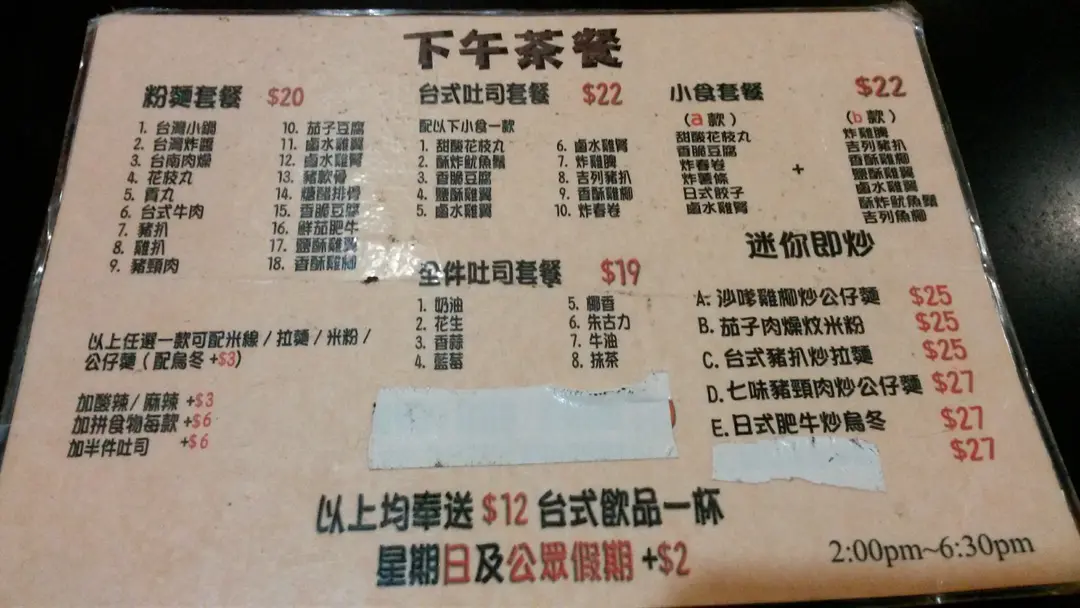 下午茶餐
粉麵套餐 $20
1. 台灣小鍋
2. 台灣炸醬
3. 台南肉燥
4. 花枝丸
5. 貢丸
6. 台式牛肉
7. 豬扒
8. 雞扒
9. 豬頸肉
10. 茄子豆腐
11. 鹵水雞翼
12. 鹵水雞腎
13. 豬軟骨
14. 糖醋排骨
15. 香脆豆腐
16. 鮮茄肥牛
17. 鹽酥雞翼
18. 香酥雞柳
以上任選一款可配米線 / 拉麵 / 米粉 /
公仔麵 ( 配烏冬 +$3)
加酸辣 / 麻辣 +$3
加拼食物每款 +$6
加半件吐司 +$6
台式吐司套餐 $22
配以下小食一款
1. 甜酸花枝丸
2. 酥炸魷魚鬚
3. 香脆豆腐
4. 鹽酥雞翼
5. 鹵水雞翼
6. 鹵水雞腎
7. 炸雞脾
8. 吉列豬扒
9. 香酥雞柳
10. 炸春卷
全件吐司套餐 $19
1. 奶油
2. 花生
3. 香蒜
4. 藍莓
5. 椰香
6. 朱古力
7. 牛油
8. 抹茶
小食套餐 $22
(a 款 )
甜酸花枝丸
香脆豆腐
炸春卷
炸薯條
日式餃子
鹵水雞腎
+
(b 款 )
炸雞脾
吉列豬扒
香酥雞柳
鹽酥雞翼
鹵水雞翼
酥炸魷魚鬚
吉列魚柳
迷你即炒
A. 沙嗲雞柳炒公仔麵 $25
B. 茄子肉燥炆米粉 $25
C. 台式豬扒炒拉麵 $25
D. 七味豬頸肉炒公仔麵 $27
E. 日式肥牛炒烏冬 $27
$27
以上均奉送 $12 台式飲品一杯
星期日及公眾假期 +$2
2:00pm~6:30pm